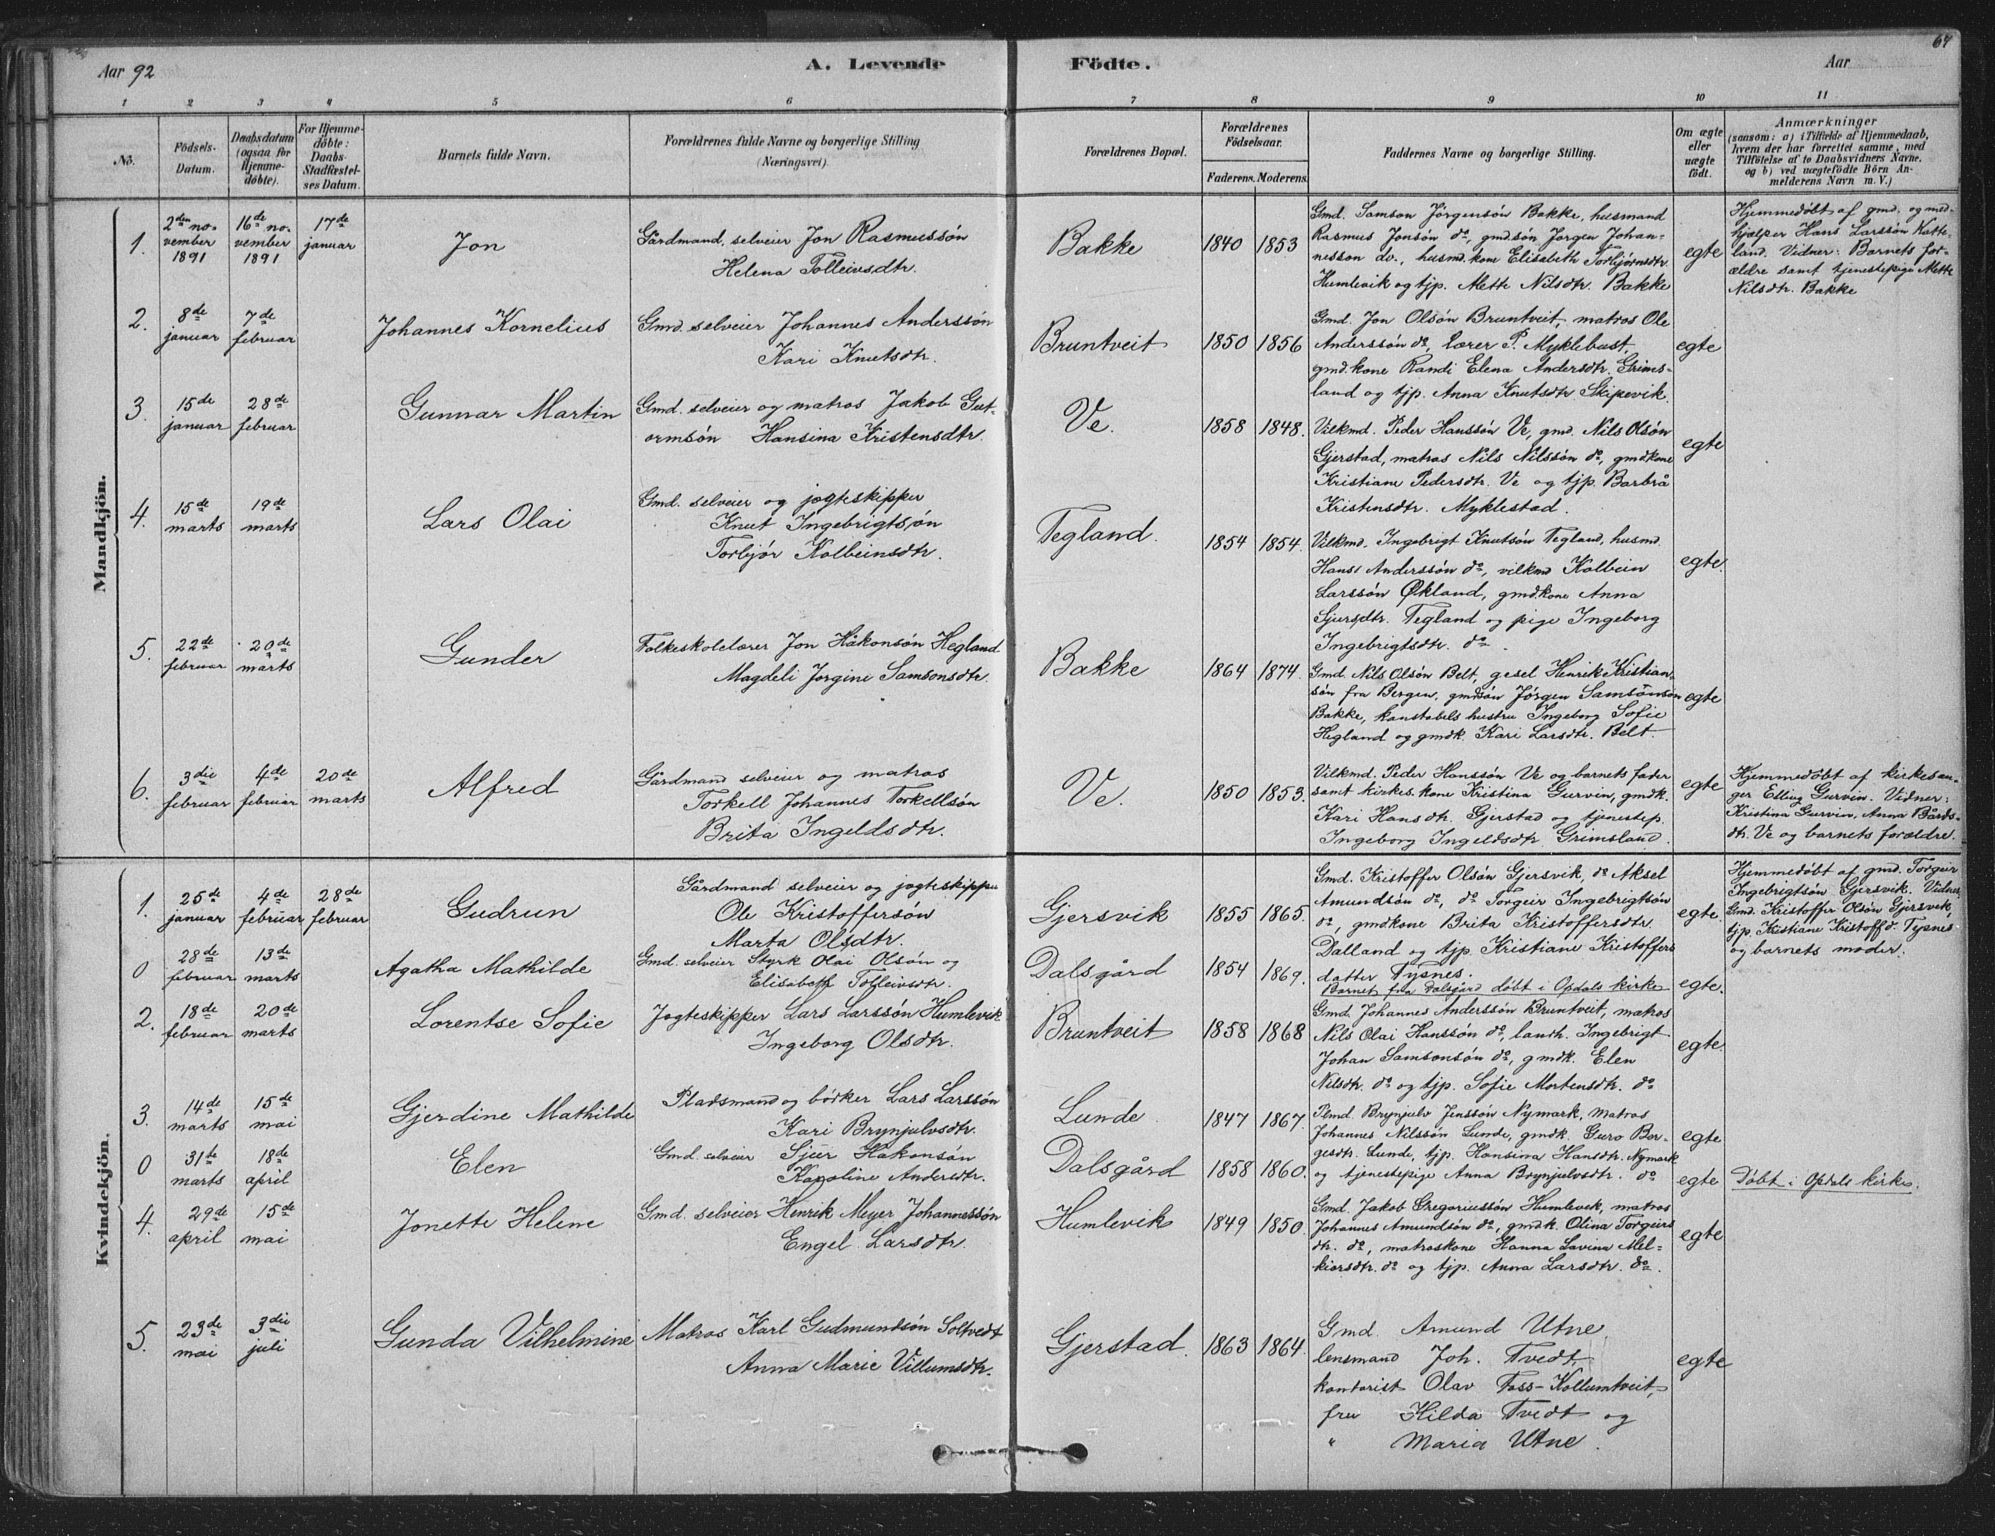 Aar 92
A. Levende Födte.
Aar
67
1 2 3 4 5 6 7 8 9 10 11
No.
Födsels-
Datum.
Daabsdatum
(ogsaa for
Hjemme-
döbte).
For Hjemme-
döbte:
Daabs-
Stadfæstel-
ses Datum.
Barnets fulde Navn.
Forældrenes fulde Navne og borgerlige Stilling
(Næringsvei).
Forældrenes Bopæl.
Forældrenes
Födselsaar.
Faderens. Moderens.
Faddernes Navne og borgerlige Stilling.
Om ægte
eller
uægte
födt.
Anmærkninger
(saasom: a) i Tilfælde af Hjemmedaab,
hvem der har forrettet samme, med
Tilföielse af to Daabsvidners Navne.
og b) ved uægtefödte Börn An-
melderens Navn m. V.)
Mandkjön.
1.
2den no-
vember
1891
16de no-
vember
1891
17de
januar
Jon
Gårdmand, selveier Jon Rasmussön
Helena Tolleivsdtr.
Bakke
1840 1853
Gmd. Samson Jörgensön Bakke, husmand
Rasmus Jonsön do, gmdsön Jörgen Johan-
nesson do., husmd.kone Elisabeth Torbjørnsdtr.
Humlevik og tjp. Mette Nilsdtr. Bakke
egte
Hjemmedøbt af gmd. og med-
hjælper Hans Larssön Katte-
land. Vidner: Barnets for-
ældre samt tjenestepige Mette
Nilsdtr. Bakke
2.
8de
januar
7de
februar
Johannes Kornelius
Gmd. selveier Johannes Anderssön
Kari Knutsdtr.
Bruntveit
1850 1856
Gmd. Jon Olsön Bruntveit, matros Ole
Anderssön do, lærer P. Myklebust,
gmd.kone Randi Elena Andersdtr. Grims-
land og tjp. Anna Knutsdtr Skipevik.
egte
3.
15de
januar
28de
februar
Gunnar Martin
Gmd. selveier og matros Jakob Gut-
ormsön Hansina Kristensdtr.
Ve.
1858 1848.
Vilkmd. Peder Hanssön Ve, gmd. Nils Olsön
Gjerstad, matros Nils Nilssön do, gmdkone
Kristiane Pedersdtr. Ve og tjp. Barbrå
Kristensdtr. Myklestad.
egte
4.
15de
marts
19de
marts
Lars Olai
Gmd. selveier og jagteskipper
Knut Ingebrigtsön
Torbjør Kolbeinsdtr.
Tegland.
1854 1854.
Vilkmd. Ingebrigt Knutsön Tegland, husmd.
Hans Anderssön do, vilkmd Kolbein
Larssön Økland, gmdkone Anna
Sjursdtr. Tegland og pige Ingeborg
Ingebrigtsdtr. do.
egte.
5.
22de
februar
20de
marts
Gunder
Folkeskolelærer Jon Håkonsön Hegland
Magdeli Jørgine Samsonsdtr.
Bakke
1864 1874.
Gmd. Nils Olsön Belt, gesel Henrik Kristian-
sön fra Bergen, gmdsön Jørgen Samsönsön
Bakke, konstabels hustru Ingeborg Sofie
Hegland og gmdk. Kari Larsdtr. Belt.
egte
6.
3die
februar
4de
februar
20de
marts
Alfred
Gårdmand selveier og matros
Torkell Johannes Torkellsön
Brita Ingeldsdtr.
Ve.
1850 1853.
Vilkmd. Peder Hanssön Ve og barnets fader
samt kirkes. kone Kristina Gurvin, gmdk.
Kari Hansdtr. Gjerstad og tjenestep.
Ingeborg Ingeldsdtr. Grimsland.
egte
Hjemmedøbt af kirkesan-
ger Elling Gurvin. Vidner:
Kristina Gurvin, Anna Bårds-
dtr. Ve og barnets forældre.
Kvindekjön.
1.
25de
januar
4de
februar
28de
februar
Gudrun
Gårdmand selveier og jagteskipper
Ole Kristoffersön
Marta Olsdtr.
Gjersvik
1855 1865.
Gmd. Kristoffer Olsön Gjersvik, do Aksel
Amundsön do, do Torgeir Ingebrigtsön
do, gmdkone Brita Kristoffersdtr.
Dalland og tjp. Kristiane Kristoffers
datter Tysnes.
egte.
Hjemmedøbt af gmd. Torgeir
Ingebrigtsön Gjersvik. Vidner:
Gmd. Kristoffer Olsön Gjersvik,
tjp. Kristiane Kristoffd. Tysnes
og barnets moder.
0
28de
februar
13de
marts
Agatha Mathilde
Gmd. selveier Styrk Olai Olsön og
Elisabeth Tolleivsdtr.
Dalsgård
1854 1869.
Barnet fra Dalsgård døbt i Opdals kirke
egte.
2.
18de
februar
20de
marts
Lorentse Sofie
Jagteskipper Lars Larssön Humlevik
Ingeborg Olsdtr.
Bruntveit
1858 1868
Gmd. Johannes Anderssön Bruntveit, matros
Nils Olai Hanssön do, landh. Ingebrigt
Johan Samsonsön do, gmdk. Elen
Nilsdtr. do og tjp. Sofie Mortensdtr. do
egte.
3.
14de
marts
15de
mai
Gjerdine Mathilde
Pladsmand og bødker Lars Larssön
Kari Brynjulvsdtr.
Lunde
1847 1867.
Plmd. Brynjulv Jenssön Nymark, matros
Johannes Nilssön Lunde, gmdk. Guro Bor-
gesdtr. Lunde, tjp. Hansina Hansdtr. Nymark
og tjenestepige Anna Brynjulvsdtr. do
egte
0
31te
marts
18de
april
Elen
Gmd. selveier Sjur Håkonsön
Karoline Andersdtr.
Dalsgård
1858 1860.
egte
Døbt i Opdals kirke.
4.
29de
april
15de
mai
Jonette Helene
Gmd. selveier Henrik Meyer Johannessön
Engel Larsdtr.
Humlevik
1849 1850.
Gmd. Jakob Gregoriussön Humlevik, matros
Johannes Amundsön do, gmdk. Olina Torgeirs
dtr. do, matroskone Hanna Lavina Mel-
kiorsdtr. do og tjp. Anna Larsdtr. do.
egte
5.
23de
mai
3die
juli
Gunda Vilhelmine
Matros Karl Gudmundsön Soltvedt
Anna Marie Villumsdtr.
Gjerstad.
1863 1864.
Gmd. Amund Utne,
lensmand Joh. Tvedt,
kontorist Olav Foss-Kollumtveit,
fru Hilda Tvedt og
" Maria Utne.
egte